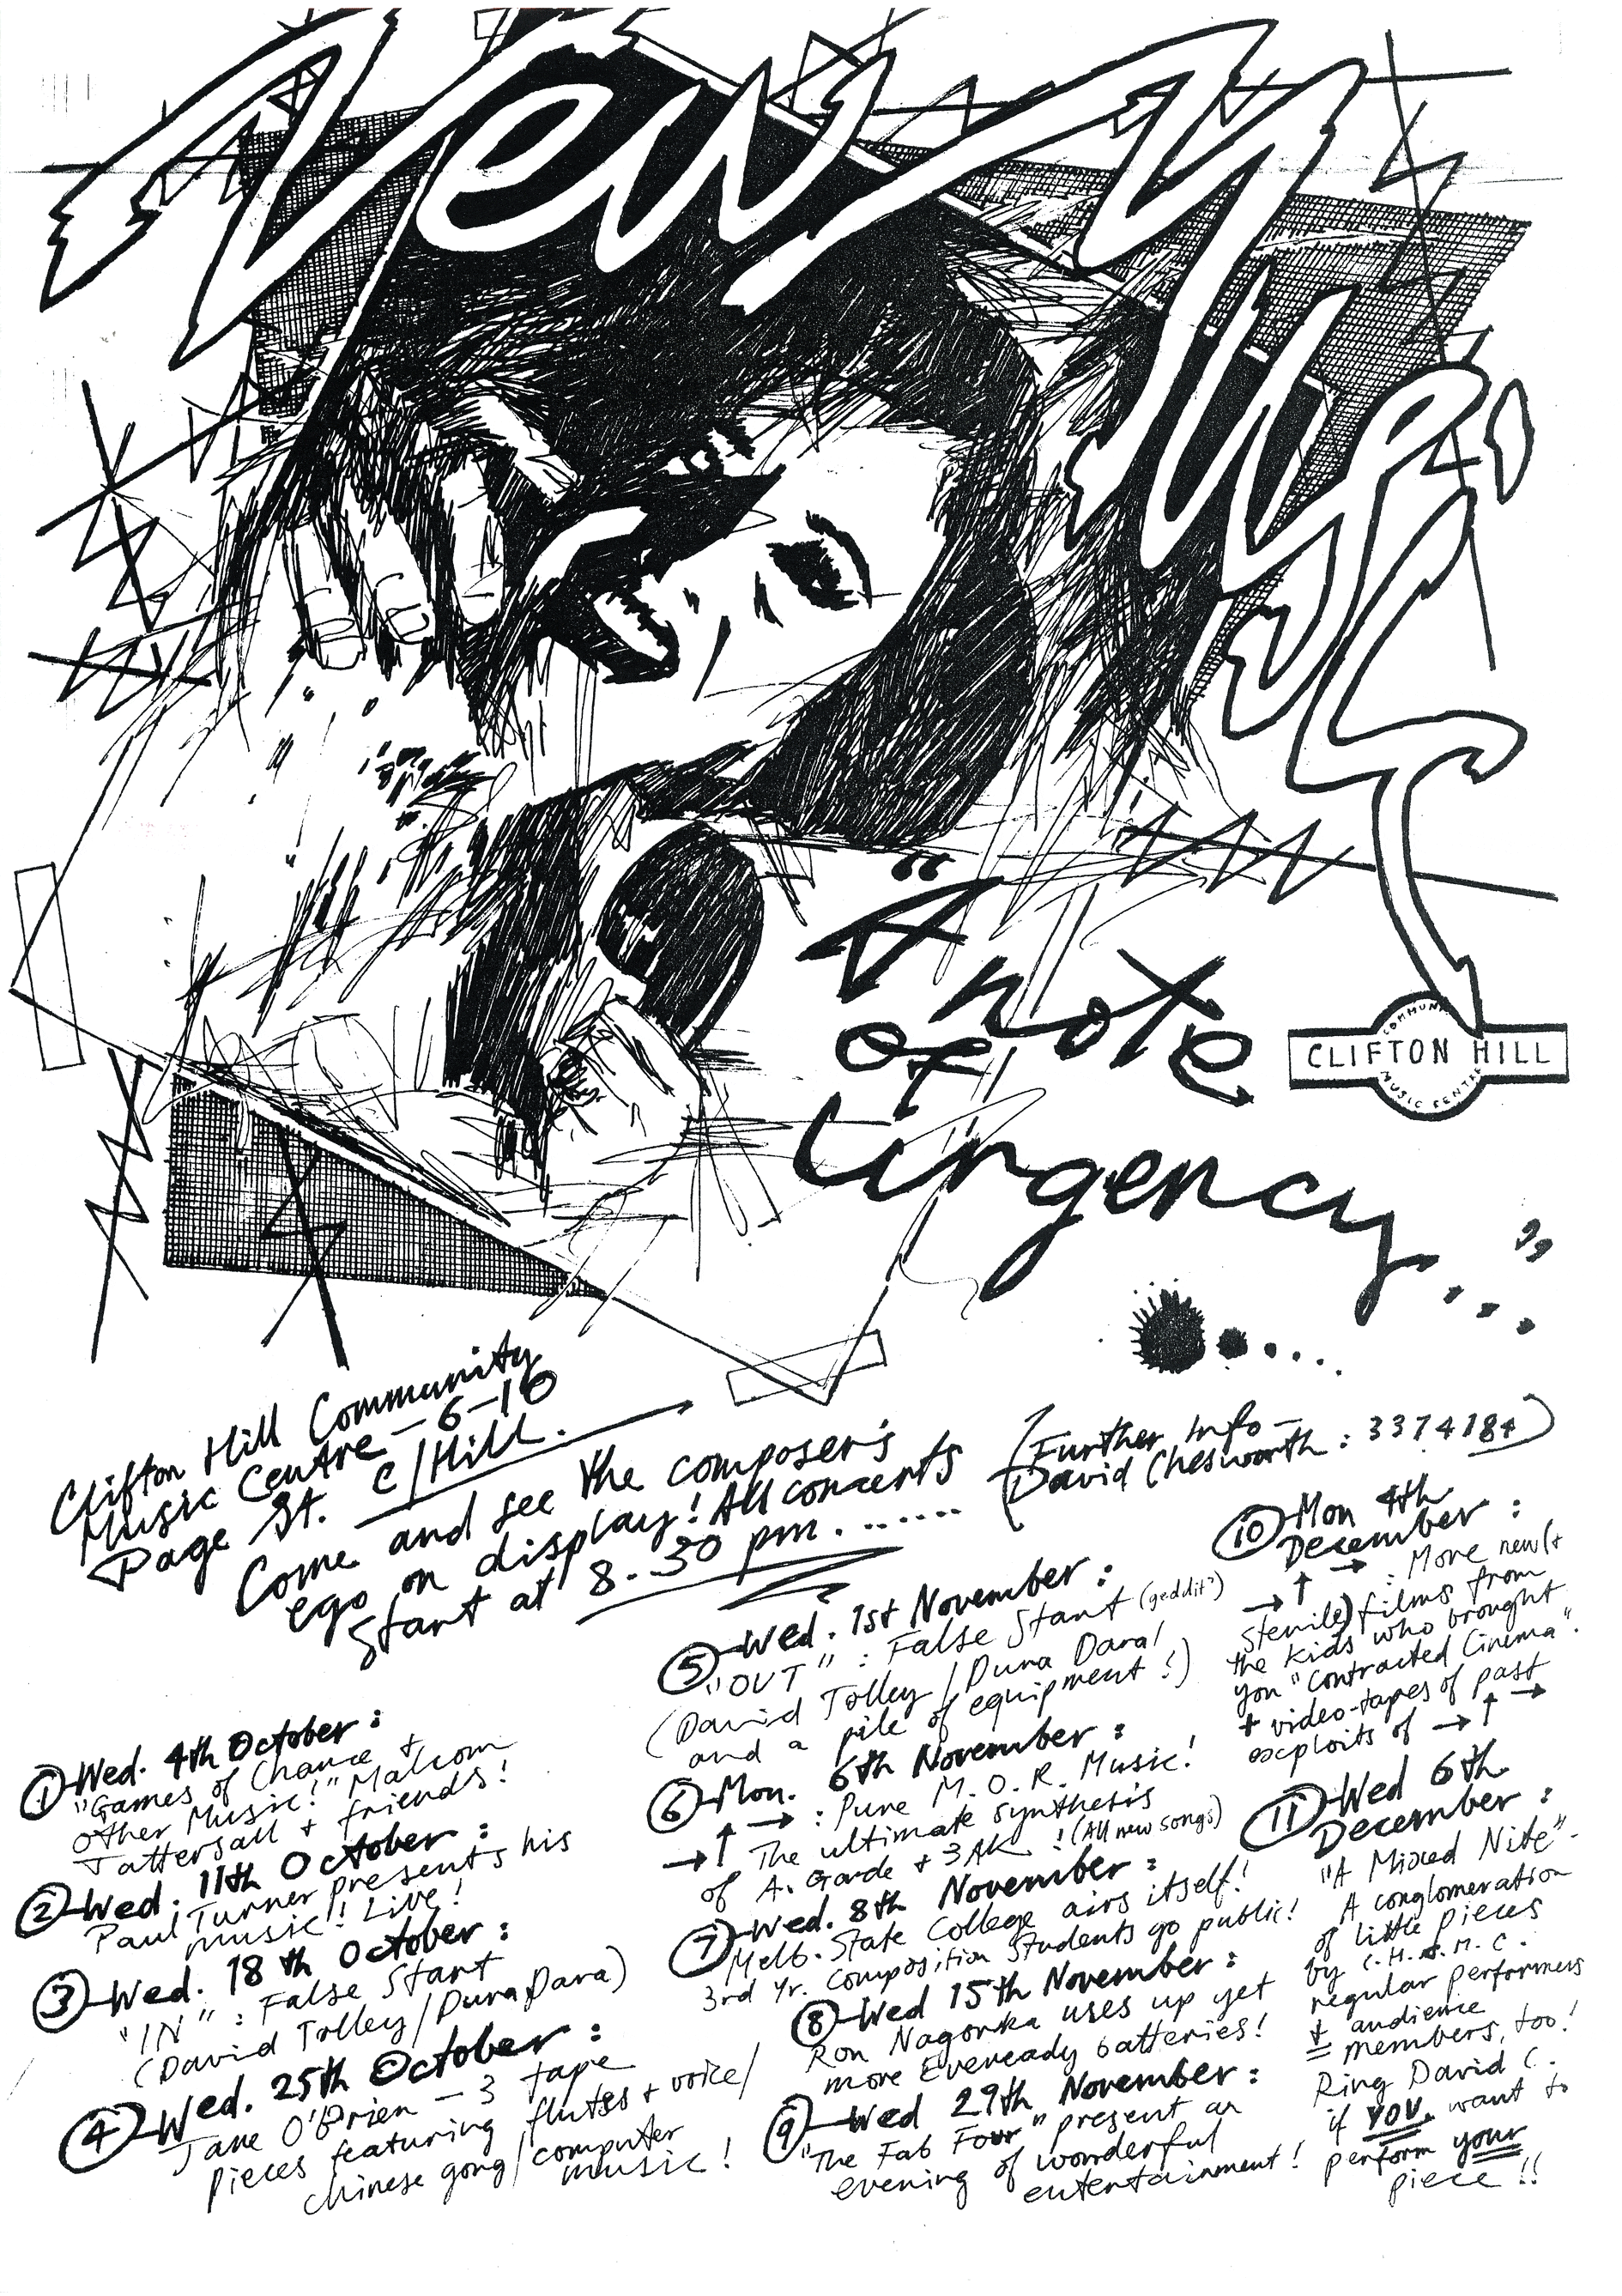 New Music
"A note
of
Urgency...."
COMMUN
CLIFTON HILL
MUSIC CENTRE
Clifton Hill Community
Music Centre - 6-10
Page St. C/Hill.
Come and see the composer's
ego on display! All concerts
start at 8.30 pm.......
(Further Info -
David Chesworth : 3374184)
① Wed. 4th October :
"Games of Chance +
Other Music!" Malcom
Tattersall + friends!
② Wed. 11th October :
Paul Turner presents his
music! Live!
③ Wed. 18th October :
"IN" : False Start
(David Tolley/Dura Dara)
④ Wed. 25th October :
Jane O'Brien - 3 tape
pieces featuring flutes + voice/
Chinese gong/computer
music!
⑤ Wed. 1st November :
"OUT" : False Start (geddit?)
(David Tolley/Dura Dara/
and a pile of equipment!)
⑥ Mon. 6th November :
→ ↑ → : Pure M.O.R. Music!
The ultimate synthesis
of A. Garde + 3AK! (All new songs)
⑦ Wed. 8th November :
Melb. State College airs itself!
3rd Yr. Composition Students go public!
⑧ Wed 15th November :
Ron Nagorka uses up yet
more Eveready batteries!
⑨ Wed 29th November :
"The Fab Four" present an
evening of wonderful
entertainment!
⑩ Mon 4th
December :
→ ↑ → : More new (+
sterile) films from
the kids who brought
you "Contracted Cinema".
+ video-tapes of past
exploits of → ↑ →
⑪ Wed 6th
December :
"A Mixed Nite" -
A conglomeration
of little pieces
by C.H.C.M.C.
regular performers
+ audience
members, too!
Ring David C.
if YOU want to
perform your
piece!!